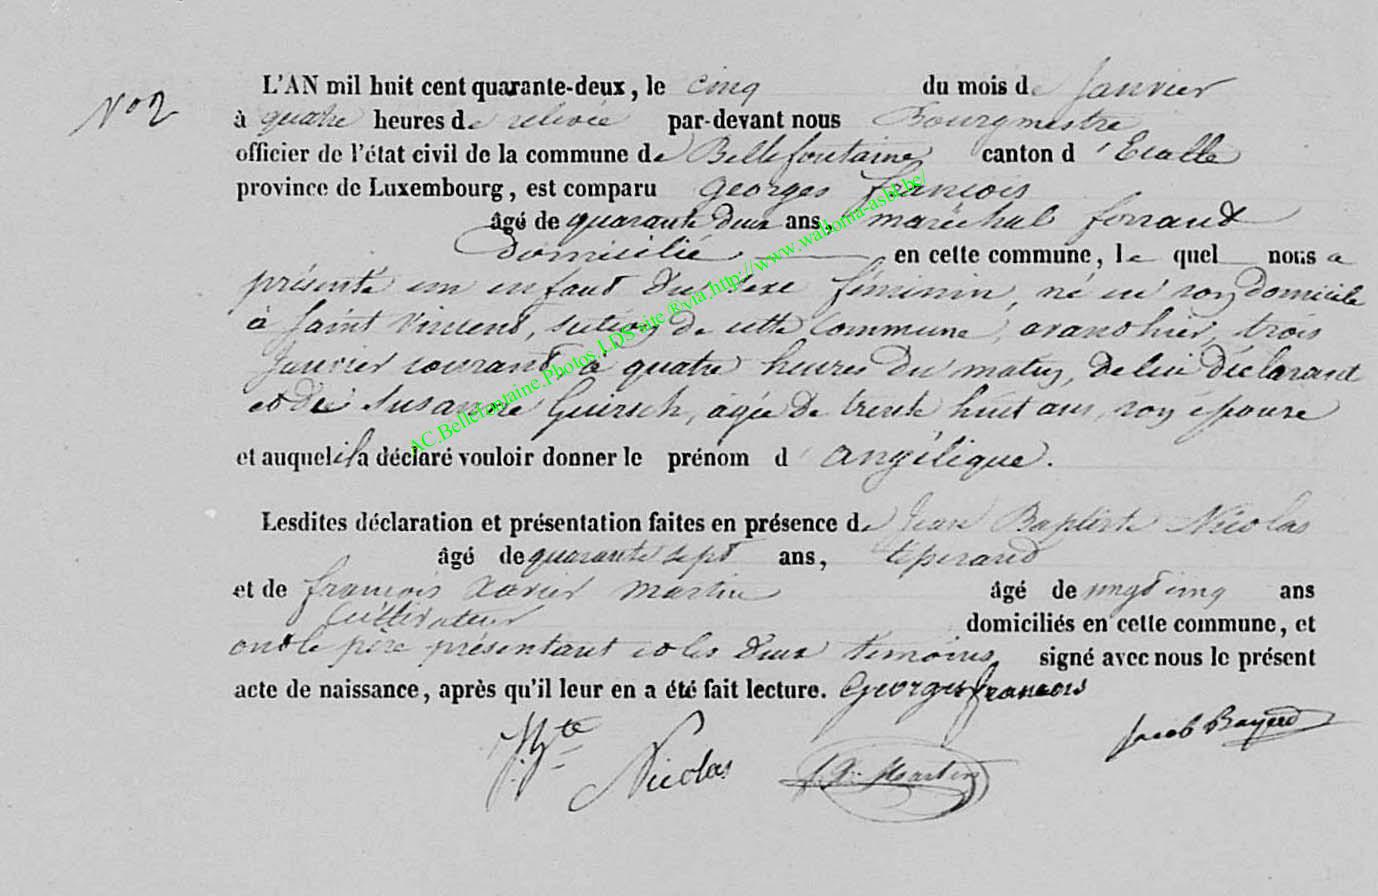 N° 2
L'AN mil huit cent quarante-deux, le cinq du mois de Janvier
à quatre heures de relevée par-devant nous Bourgmestre
officier de l'état civil de la commune de Bellefontaine canton d'Etalle
province de Luxembourg, est comparu georges françois
âgé de quarante deux ans, maréchal ferrant
domicilié en cette commune, le quel nous a
présenté un enfant du sexe féminin, né en son domicile
à Saint Vincent, section de cette commune, avanthier, trois
Janvier courant, à quatre heures du matin, de lui déclarant
et de Susanne Guirsch, agée de trente huit ans, son epouse
et auquel il a déclaré vouloir donner le prénom d'angélique.
Lesdites déclaration et présentation faites en présence de Jean Baptiste Nicolas
âgé de quarante sept ans,
et de françois xavier martin âgé de vingt cinq ans
Cultivateur domiciliés en cette commune, et
ont le père présentant et les deux temoins, signé avec nous le présent
acte de naissance, après qu'il leur en a été fait lecture. Georges françois
Nicolas Martin Jacob
AC.Bellefontaine.Photos.LDS site ®via.http://www.wallonia-asbl.be/